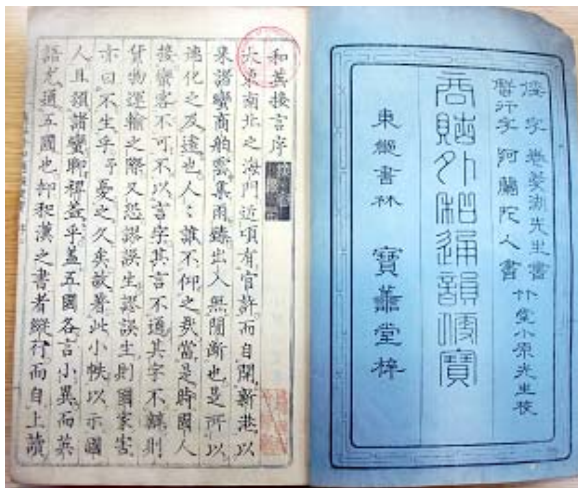 倭字 巻菱湖先生書
蟹行字 阿蘭陀人書 竹堂小原先生校
商貼外和通韻便寶
東都書林 寶 堂梓
和英接言序
大東南北之海門近頃有官許而自開新港以
来諸蠻商舶雲集雨臻出入無間断也是所以
速化之及遠也人〻誰不仰之哉當是時國人
接蠻客不可不以言字其言不通其字不辨則
貨物運輸之際又恐謬誤生謬誤生則國家害
亦曰不生乎予憂之久矣故著此小帙以示國
人且須諸蠻聊裨益乎蓋五國各言小異而英
語尤通五國也却和漢之書者縦行而自上讀